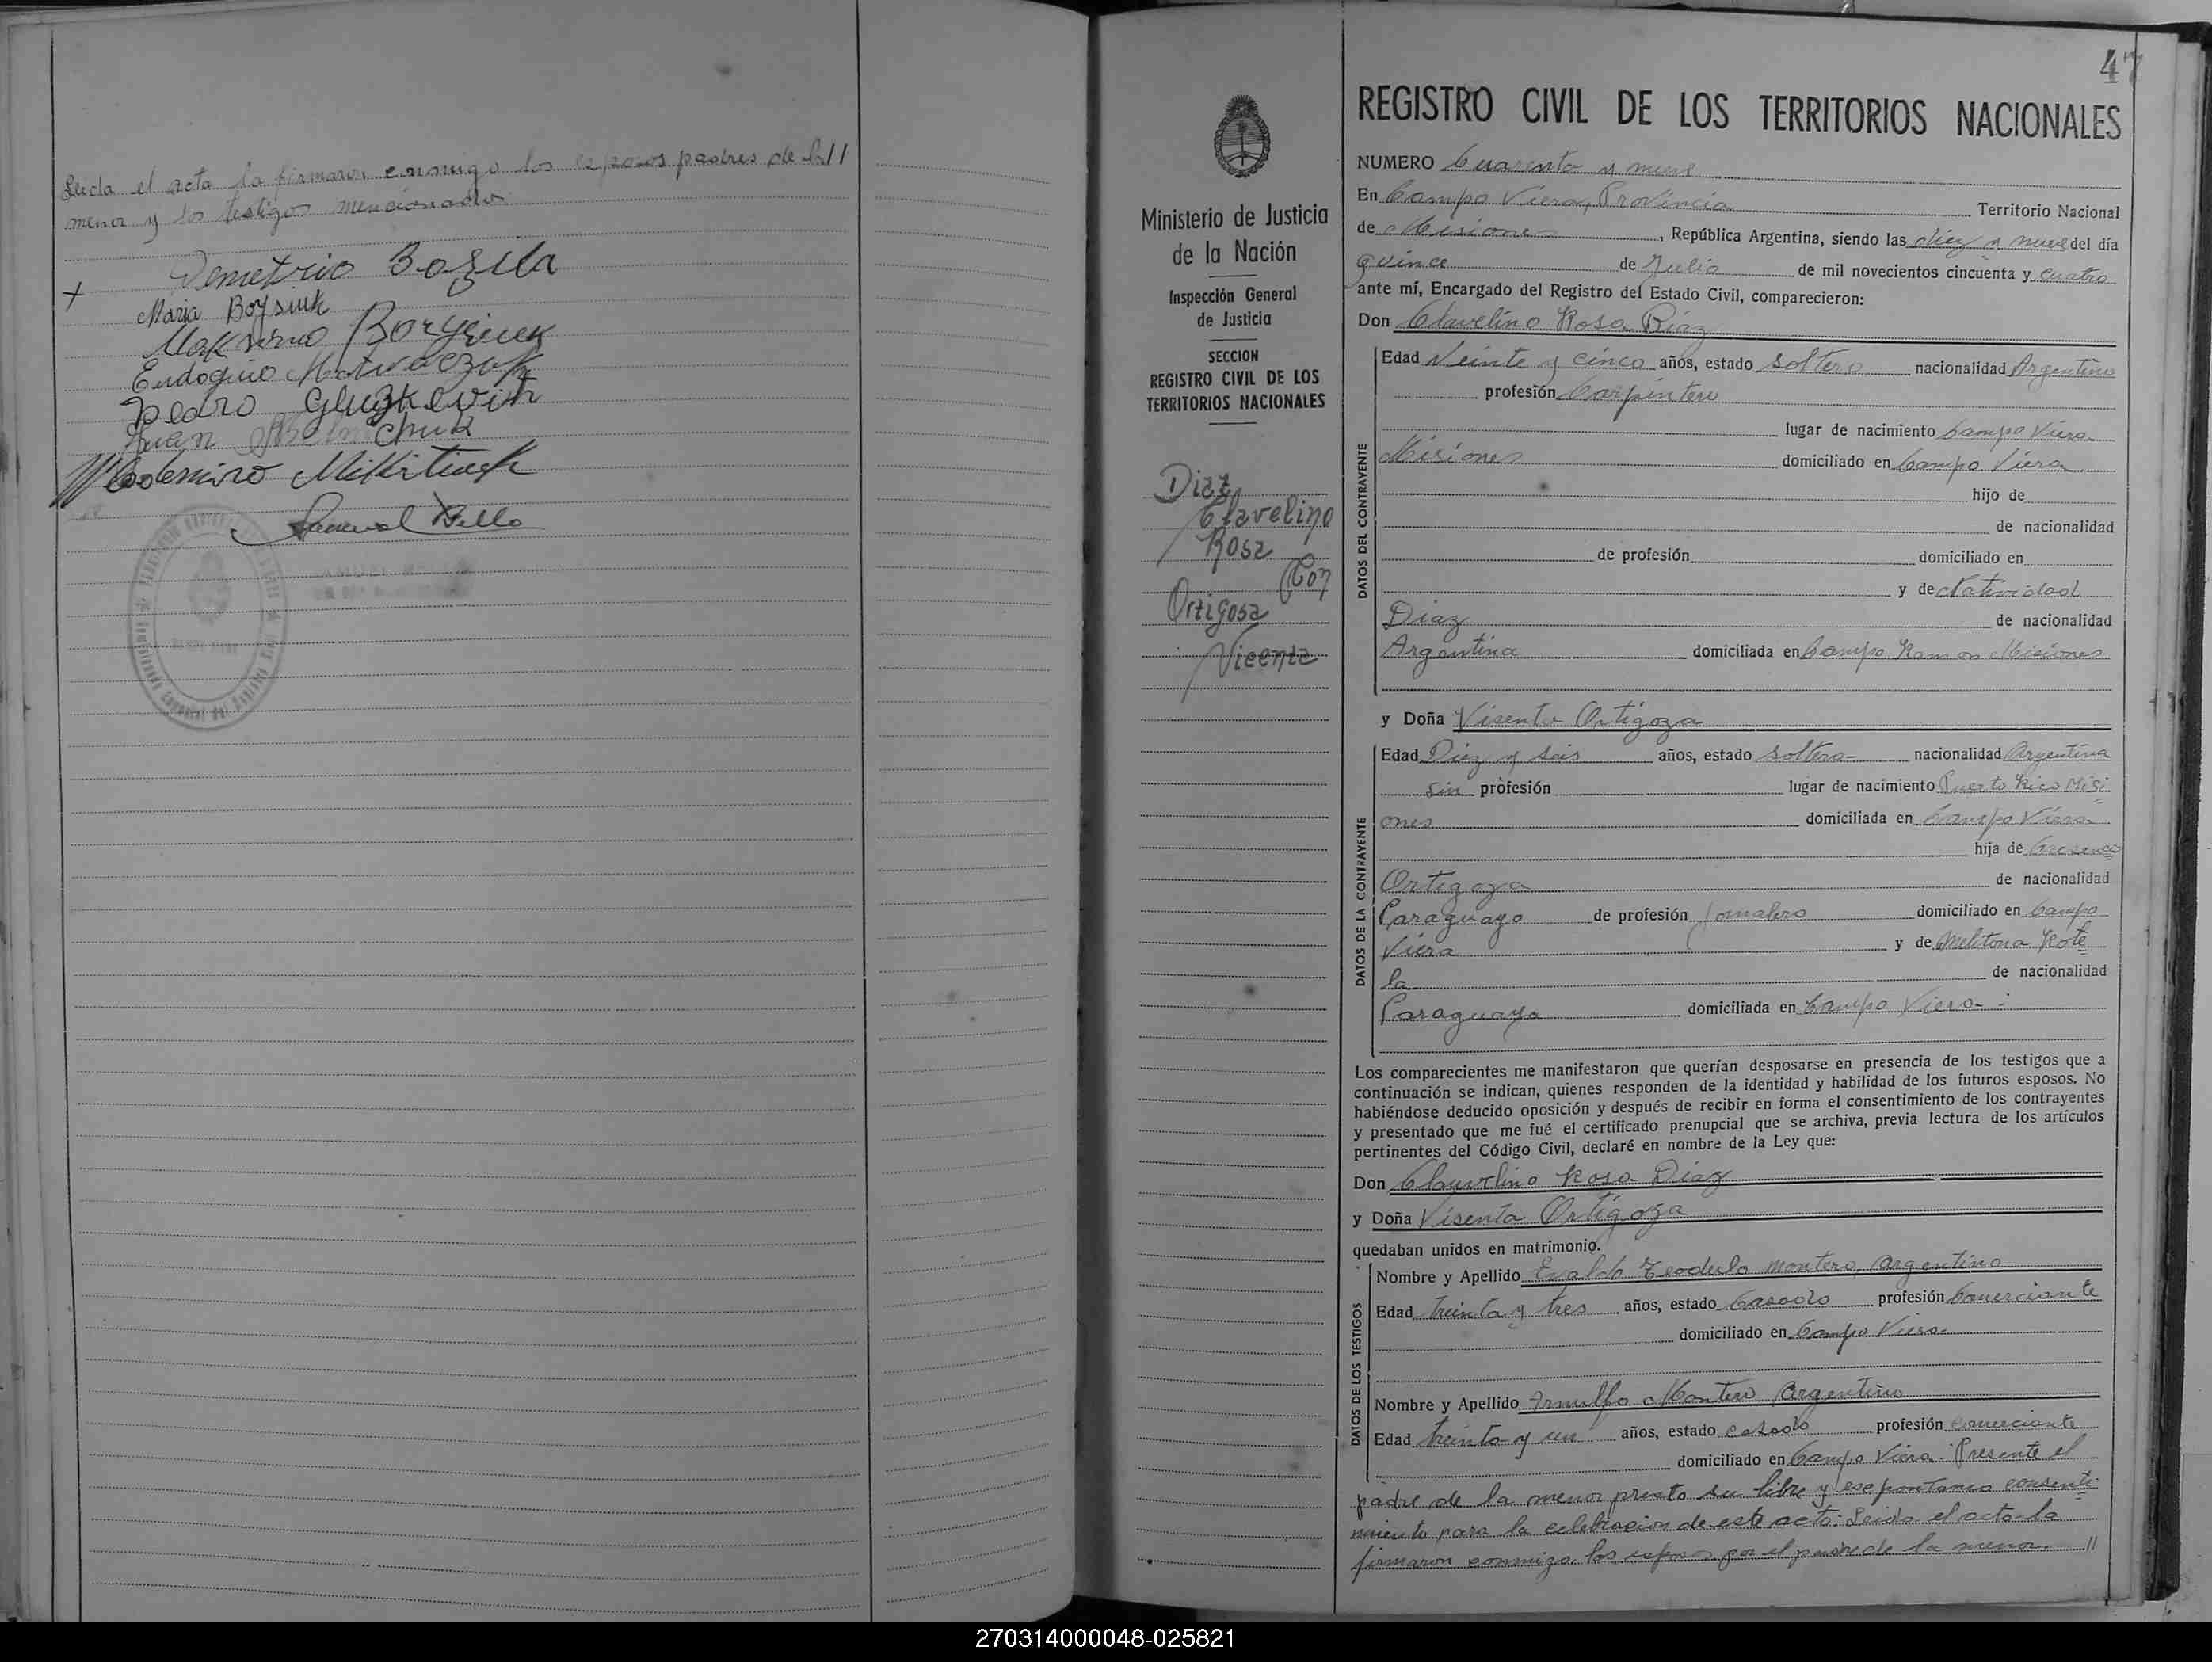 Leida el acta la firmaron conmigo los esposos padres de la //
menor y los testigos mencionados
Demetrio Bozila
+
Maria Boysuk
Maksimo Borysiuk
Eudogio
Pedro
Juan
Wlodemiro Mikitiuk
Samuel Bello
47
Ministerio de Justicia
de la Nación
Inspección General
de Justicia
SECCION
REGISTRO CIVIL DE LOS
TERRITORIOS NACIONALES
Diaz
Clavelino
Rosa
Con
Ortigosa
Vicenta
REGISTRO CIVIL DE LOS TERRITORIOS NACIONALES
NUMERO Cuarenta y nueve
En Campo Viera, Provincia Territorio Nacional
de Misiones, República Argentina, siendo las diez y nueve del día
quince de Julio de mil novecientos cincuenta y cuatro
ante mí, Encargado del Registro del Estado Civil, comparecieron:
Don Clavelino Rosa Diaz
DATOS DEL CONTRAYENTE
Edad Veinte y cinco años, estado soltero nacionalidad Argentino
profesión Carpintero
lugar de nacimiento Campo Viera
Misiones domiciliado en Campo Viera
hijo de
de nacionalidad
de profesión domiciliado en
y de Natividad
Diaz de nacionalidad
Argentina domiciliada en Campo Ramon Misiones
y Doña Visenta Ortigoza
DATOS DE LA CONTRAYENTE
Edad Diez y seis años, estado soltera nacionalidad Argentina
sin profesión lugar de nacimiento Puerto Rico Misi
ones domiciliada en Campo Viera
hija de
Ortigoza de nacionalidad
Paraguayo de profesión Jornalero domiciliado en Campo
Viera y de Melitona Rote
la de nacionalidad
Paraguaya domiciliada en Campo Viera
Los comparecientes me manifestaron que querían desposarse en presencia de los testigos que a
continuación se indican, quienes responden de la identidad y habilidad de los futuros esposos. No
habiéndose deducido oposición y después de recibir en forma el consentimiento de los contrayentes
y presentado que me fué el certificado prenupcial que se archiva, previa lectura de los artículos
pertinentes del Código Civil, declaré en nombre de la Ley que:
Don Clauvelino Rosa Diaz
y Doña Visenta Ortigoza
quedaban unidos en matrimonio.
DATOS DE LOS TESTIGOS
Nombre y Apellido Evaldo Teodulo Montero, Argentino
Edad treinta y tres años, estado Casado profesión Comerciante
domiciliado en Campo Viera
Nombre y Apellido Arnulfo Montero Argentino
Edad treinta y un años, estado casado profesión comerciante
domiciliado en Campo Viera. Presente el
padre de la menor presto su libre y espontaneo consenti
miento para la celebracion de este acto: Leida el acta la
firmaron conmigo los esposos por el padre de la menor //
270314000048-025821